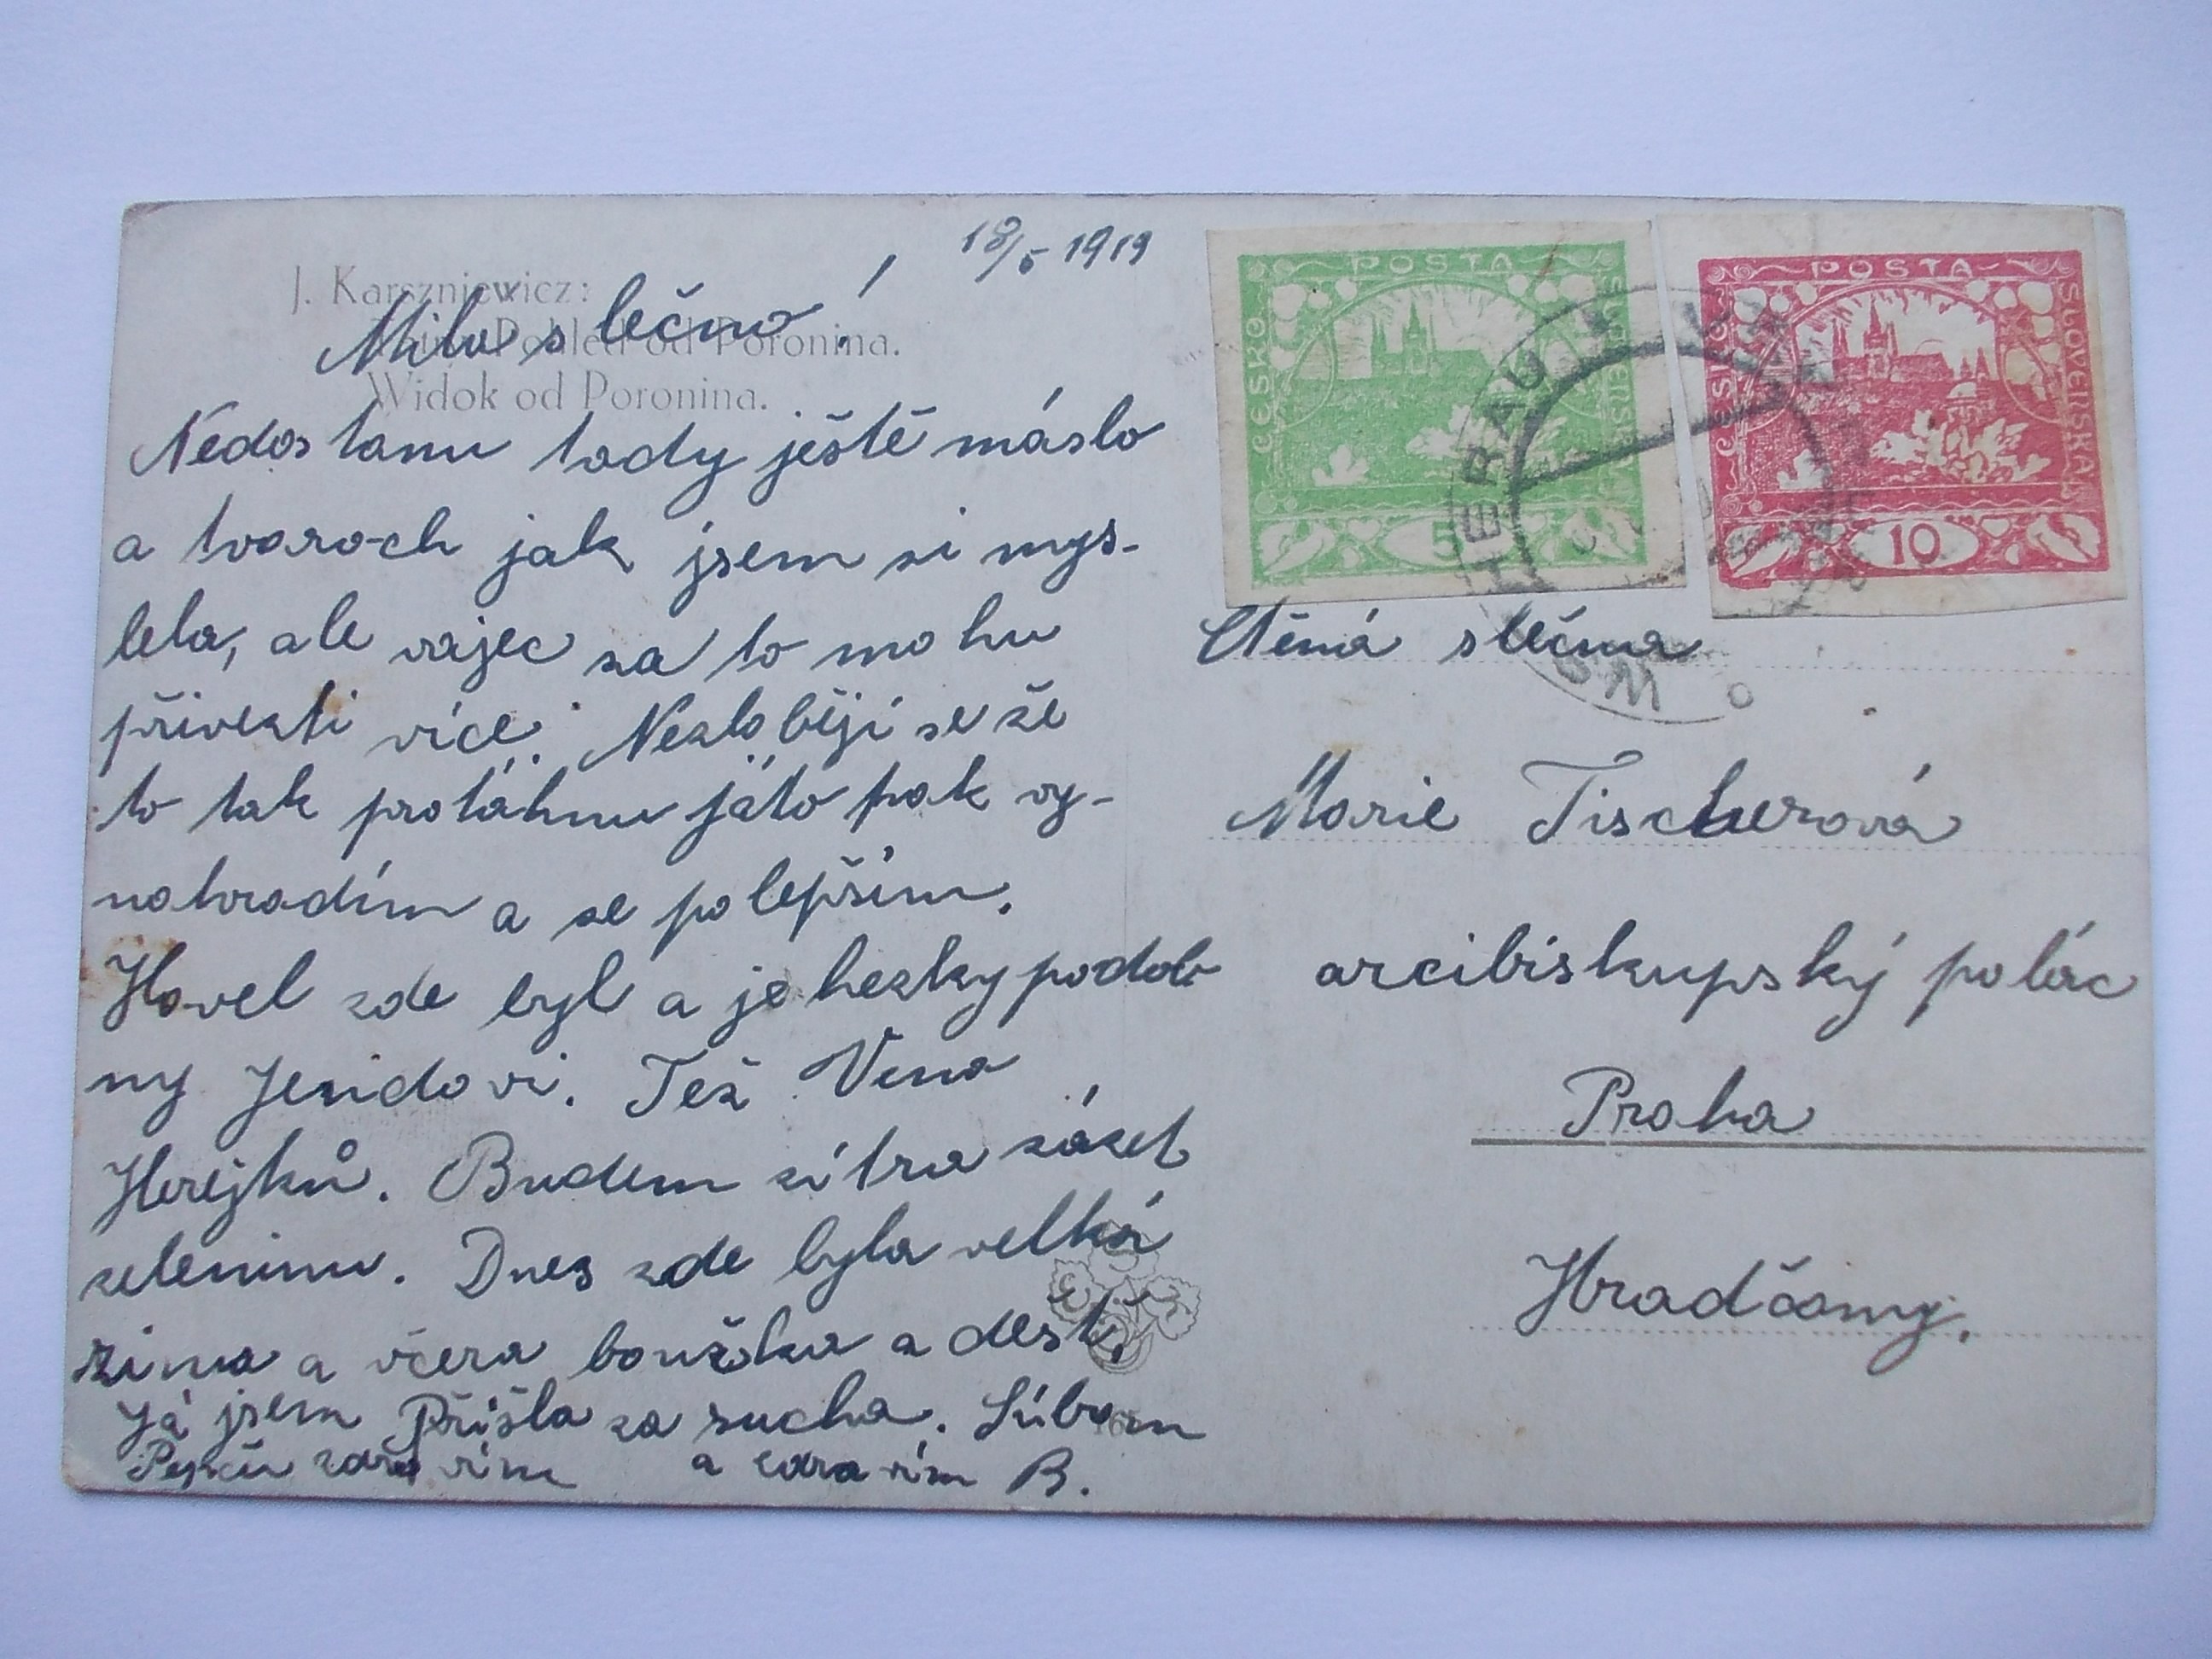 18/5 1919
J. Karszniewicz:
Milá slečno!
Pohled od Poronina.
Widok od Poronina.
Nedostanu tady ještě máslo
a tvaroch jak jsem si mys-
lela, ale vajec za to mohu
přivezti více. Nezlobějí se že
to tak protáhnu já to pak vy-
nahradím a se polepším.
Havel zde byl a je hezky podob
ný Jendovi. Též Vena
Herejků. Budem zítra sázet
zeleninu. Dnes zde byla velká
zima a včera bouřka a déšť,
Já jsem Přišla za sucha. Líbám
Pepču zdravím a zdravím B.
POSTA
ČESKO
SLOVENSKÁ
5
POSTA
ČESKO
SLOVENSKÁ
10
HERAU
Ctěná slečna
Marie Tischerová
arcibiskupský palác
Praha
Hradčany.